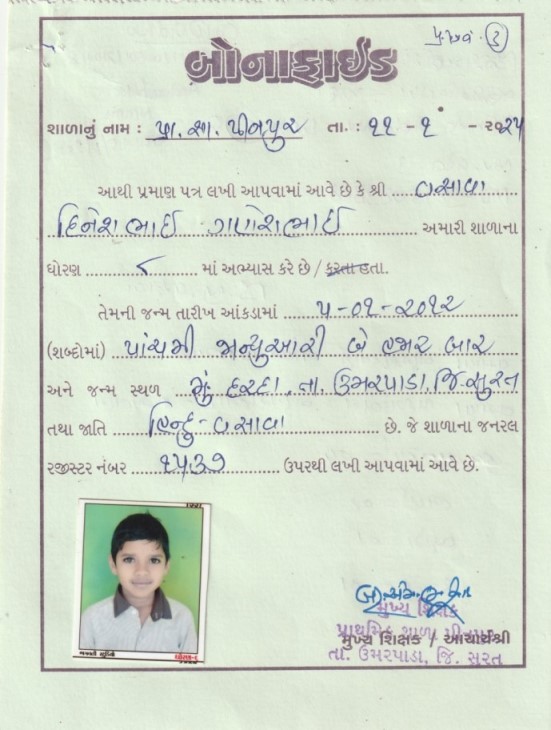 બોનાફાઈડ
શાળાનું નામ : પ્રા. શા. પીનપુર તા. : ૧૧ - ૧ - ૨૦૨૫
આથી પ્રમાણ પત્ર લખી આપવામાં આવે છે કે શ્રી વસાવા
દિનેશભાઈ ગણેશભાઈ અમારી શાળાના
ધોરણ ૮ માં અભ્યાસ કરે છે / કરતા હતા.
તેમની જન્મ તારીખ આંકડામાં ૫-૦૧-૨૦૧૨
(શબ્દોમાં) પાંચમી જાન્યુઆરી બે હજાર બાર
અને જન્મ સ્થળ મું. દરદા, તા. ઉમરપાડા, જિ. સુરત
તથા જાતિ હિન્દુ - વસાવા છે. જે શાળાના જનરલ
રજીસ્ટર નંબર ૧૫૩૭ ઉપરથી લખી આપવામાં આવે છે.
મુખ્ય શિક્ષક
પ્રાથમિક શાળા
મુખ્ય શિક્ષક / આચાર્યશ્રી
તા. ઉમરપાડા, જિ. સુરત